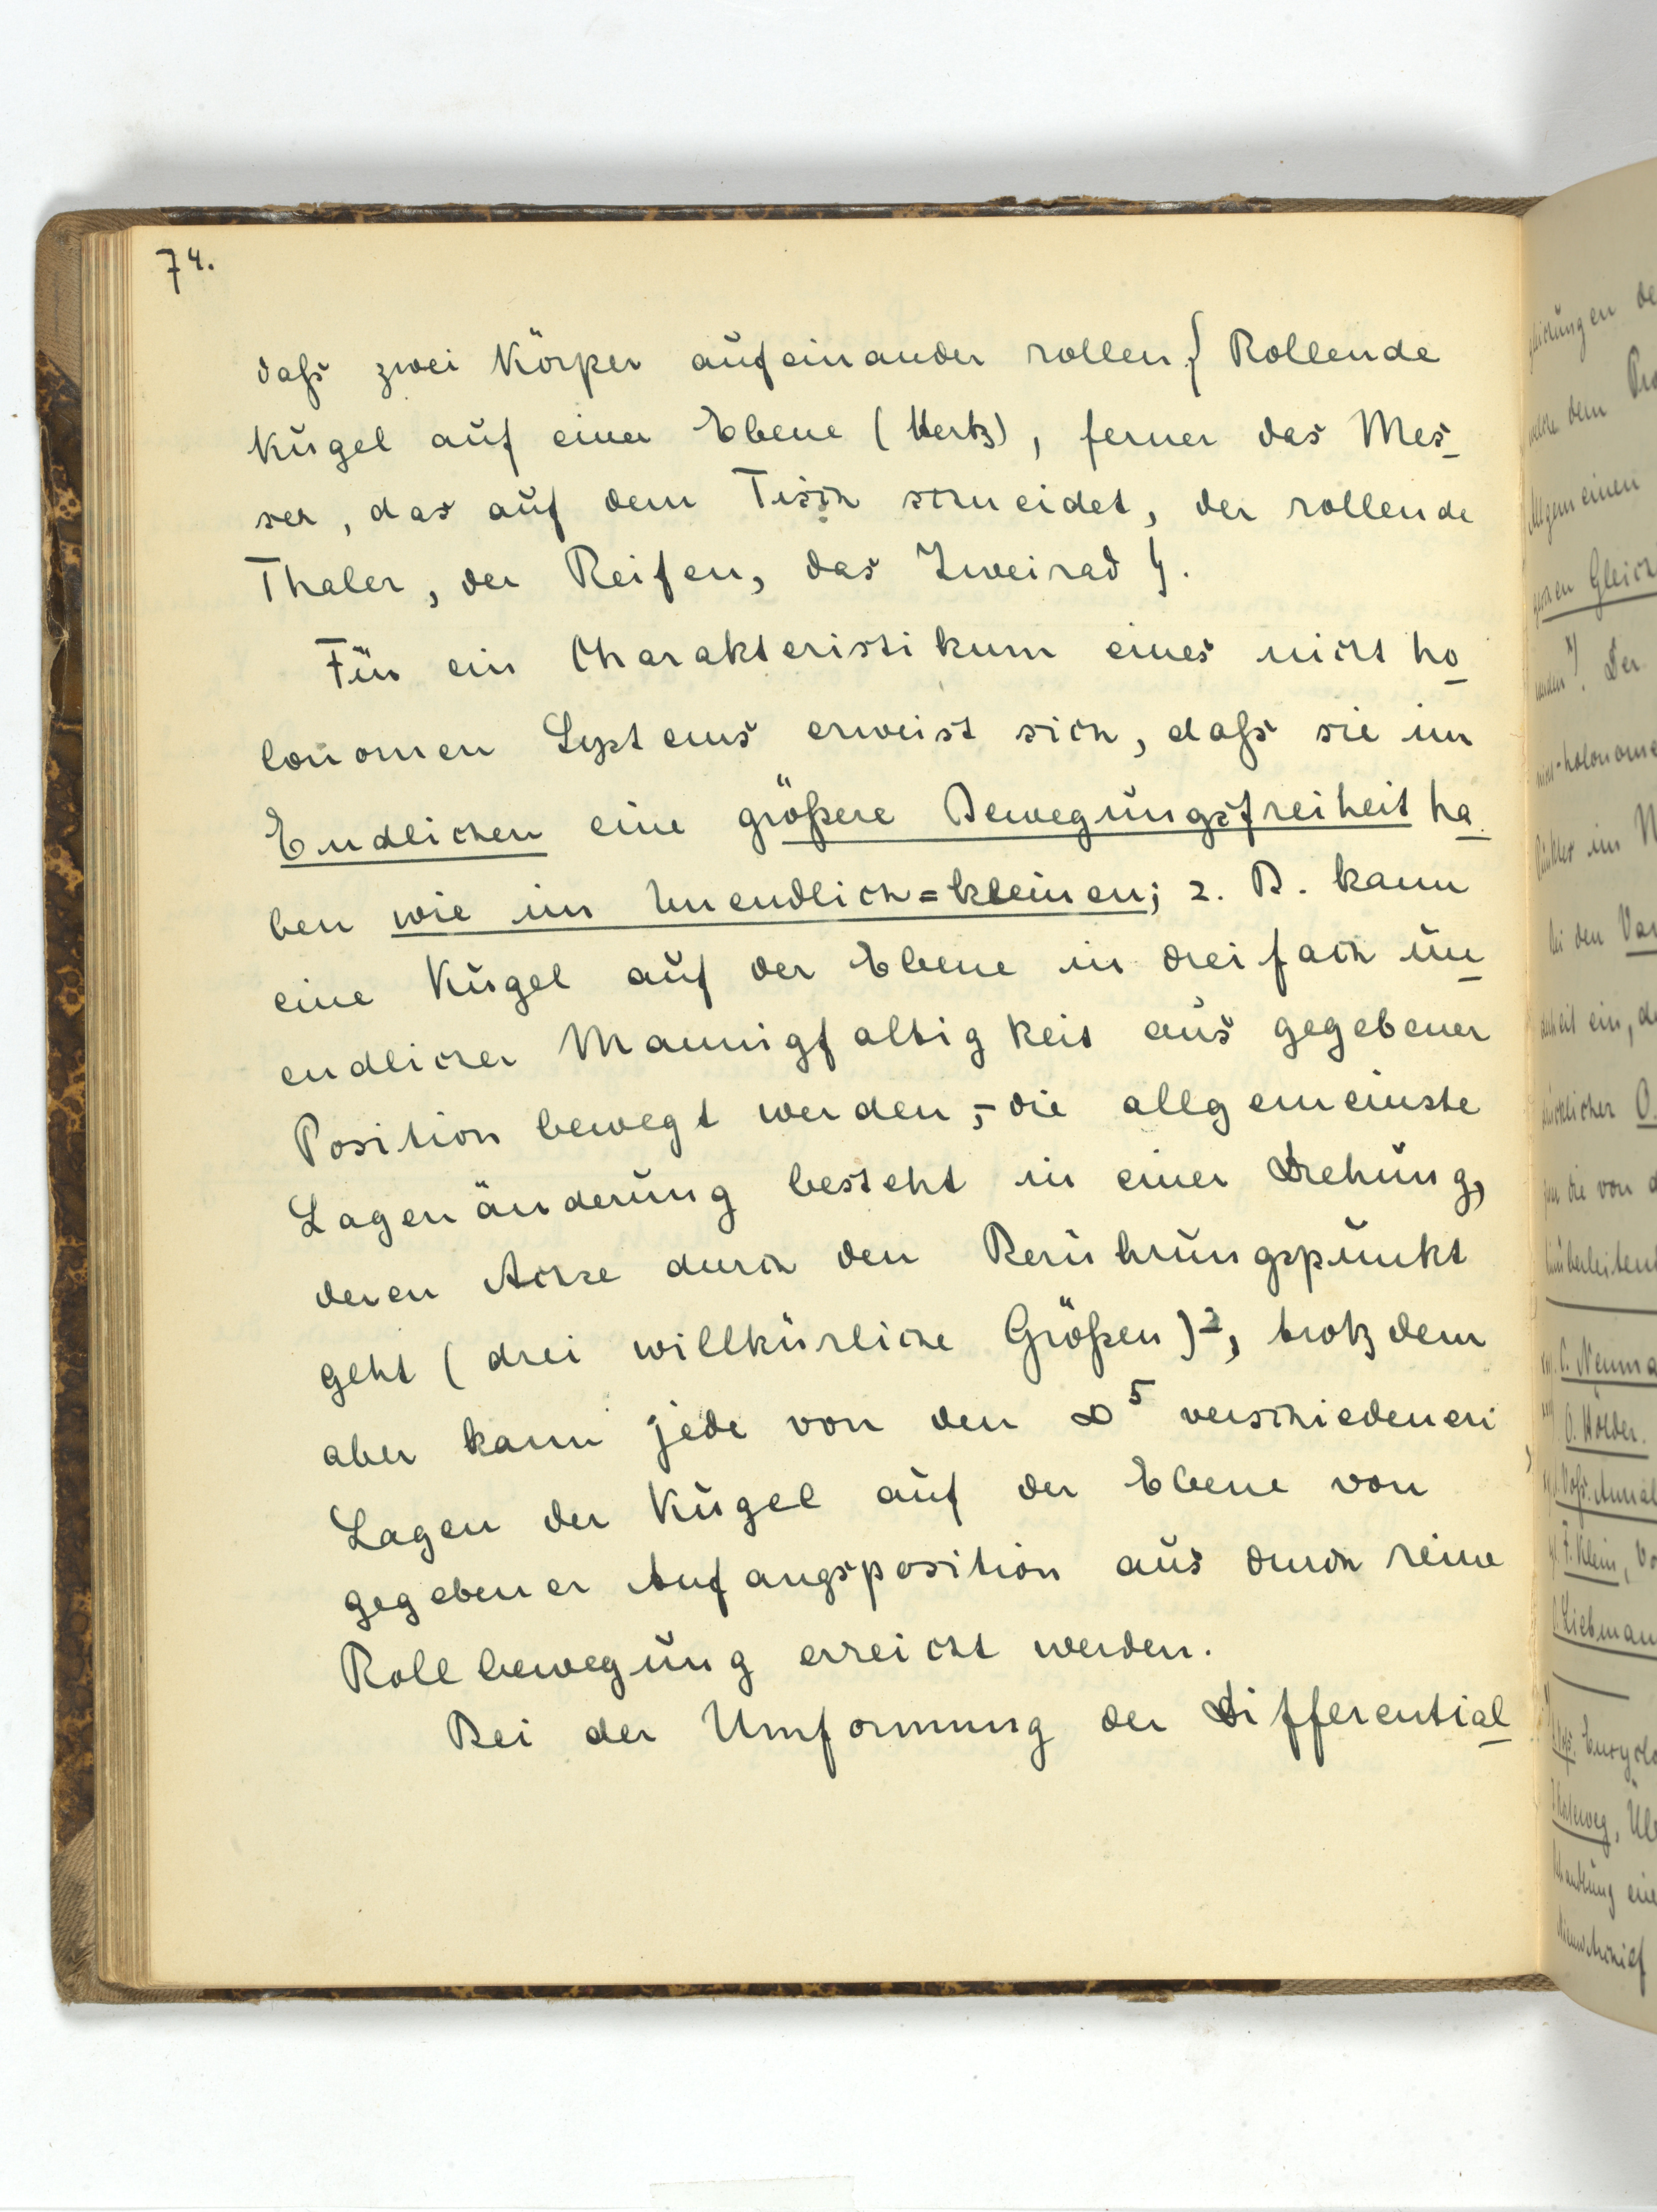 74.
daß zwei Körper aufeinander rollen { Rollende
Kugel auf einer Ebene (Hertz), ferner das Mes-
ser, das auf dem Tisch schneidet, der rollende
Thaler, der Reifen, das Zweirad }.
Für ein Charakteristikum eines nicht ho-
lonomen Systems erweist sich, daß sie im
Endlichen eine größere Bewegungsfreiheit ha-
ben wie im Unendlich=kleinen; z. B. kann
eine Kugel auf der Ebene in dreifach un-
endlicher Mannigfaltigkeit aus gegebener
Position bewegt werden, - die allgemeinste
Lagenänderung besteht in einer Drehung,
deren Achse durch den Berührungspunkt
geht (drei willkürliche Größen) -, trotzdem
aber kann jede von den ∞⁵ verschiedenen
Lagen der Kugel auf der Ebene von
gegebener Anfangsposition aus durch reine
Rollbewegung erreicht werden.
Bei der Umformung der Differential-
dem
Allgemeinen
Gleich
Der
-holonome
im
bei den
heit ein,
die von
C. Neuma
O. Hölder.
F. Klein,
Liebman